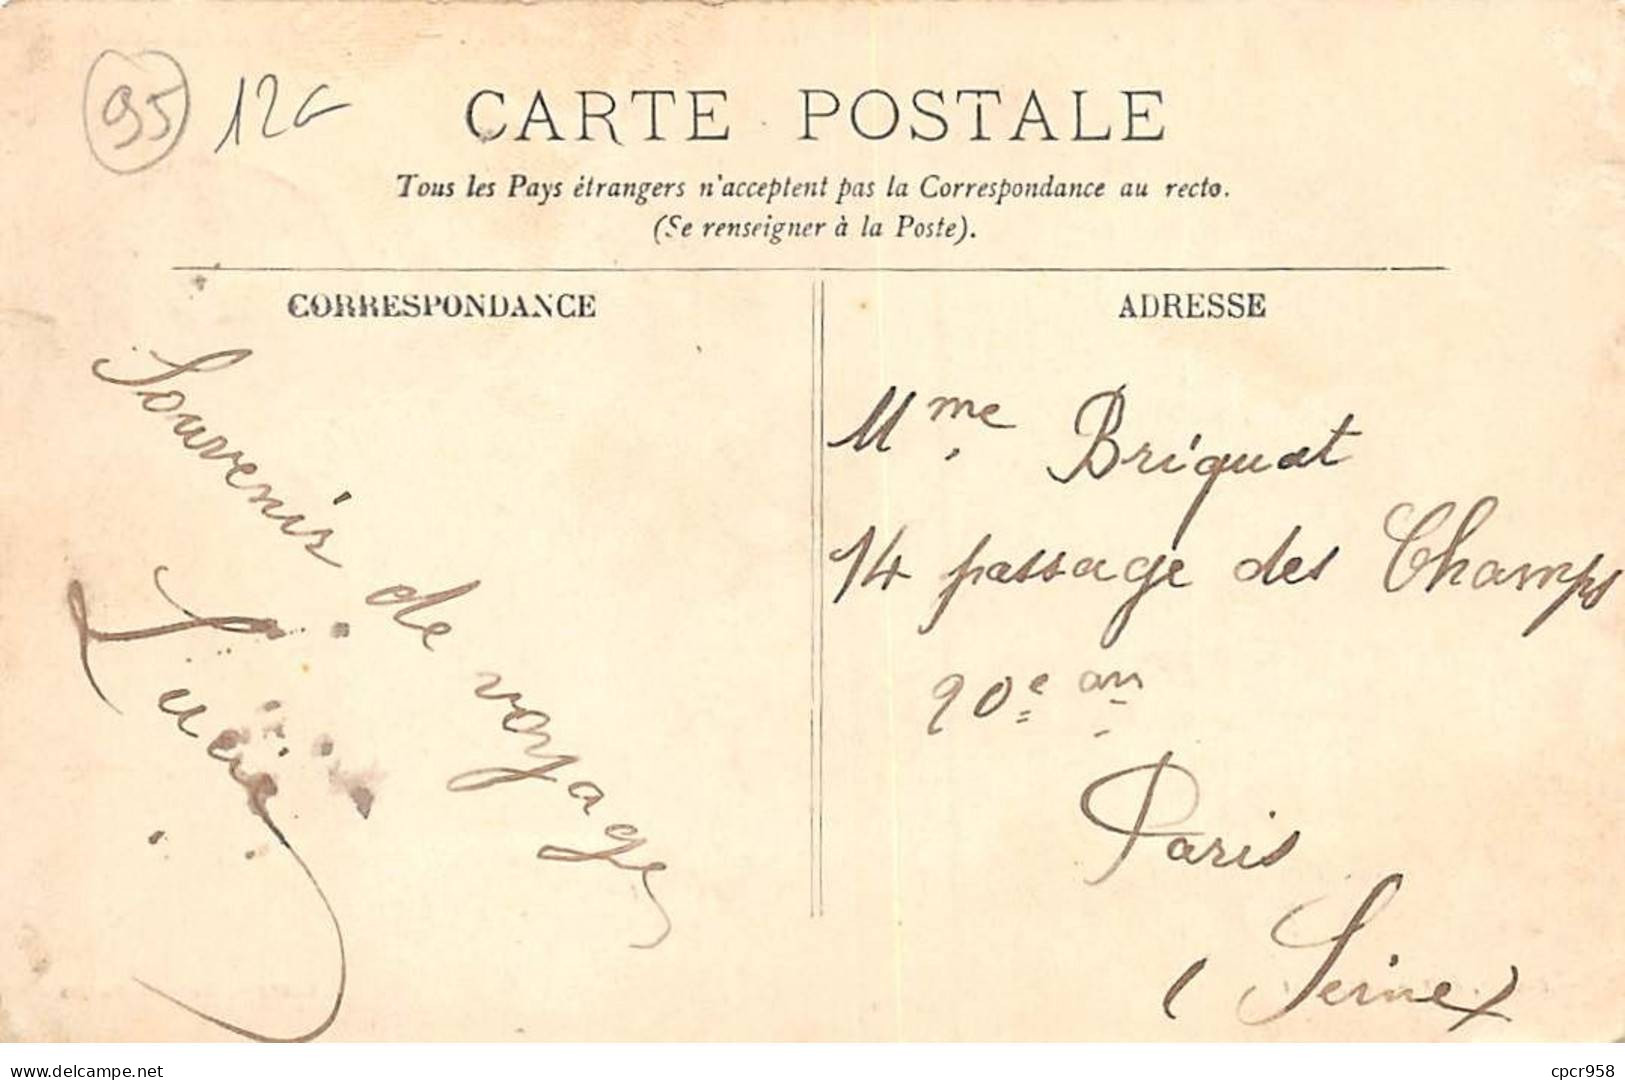 95 12G
CARTE POSTALE
Tous les Pays étrangers n'acceptent pas la Correspondance au recto.
(Se renseigner à la Poste).
CORRESPONDANCE
Souvenir de voyage
ADRESSE
Mme Briquat
14 passage des Champs
20e arr
Paris
(Seine)
www.delcampe.net
cpcr958